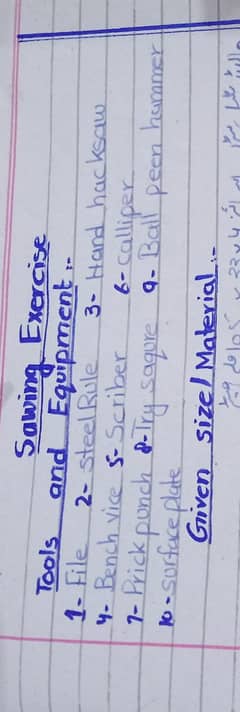 Sawing Exercise
Tools and Equipment :-
1- File 2- Steel Rule 3- Hand hacksaw
4- Bench vice 5- Scriber 6- Calliper
7- Prick punch 8- Try saqure 9- Ball peen hammer
10- surface plate
Given size/Material :-